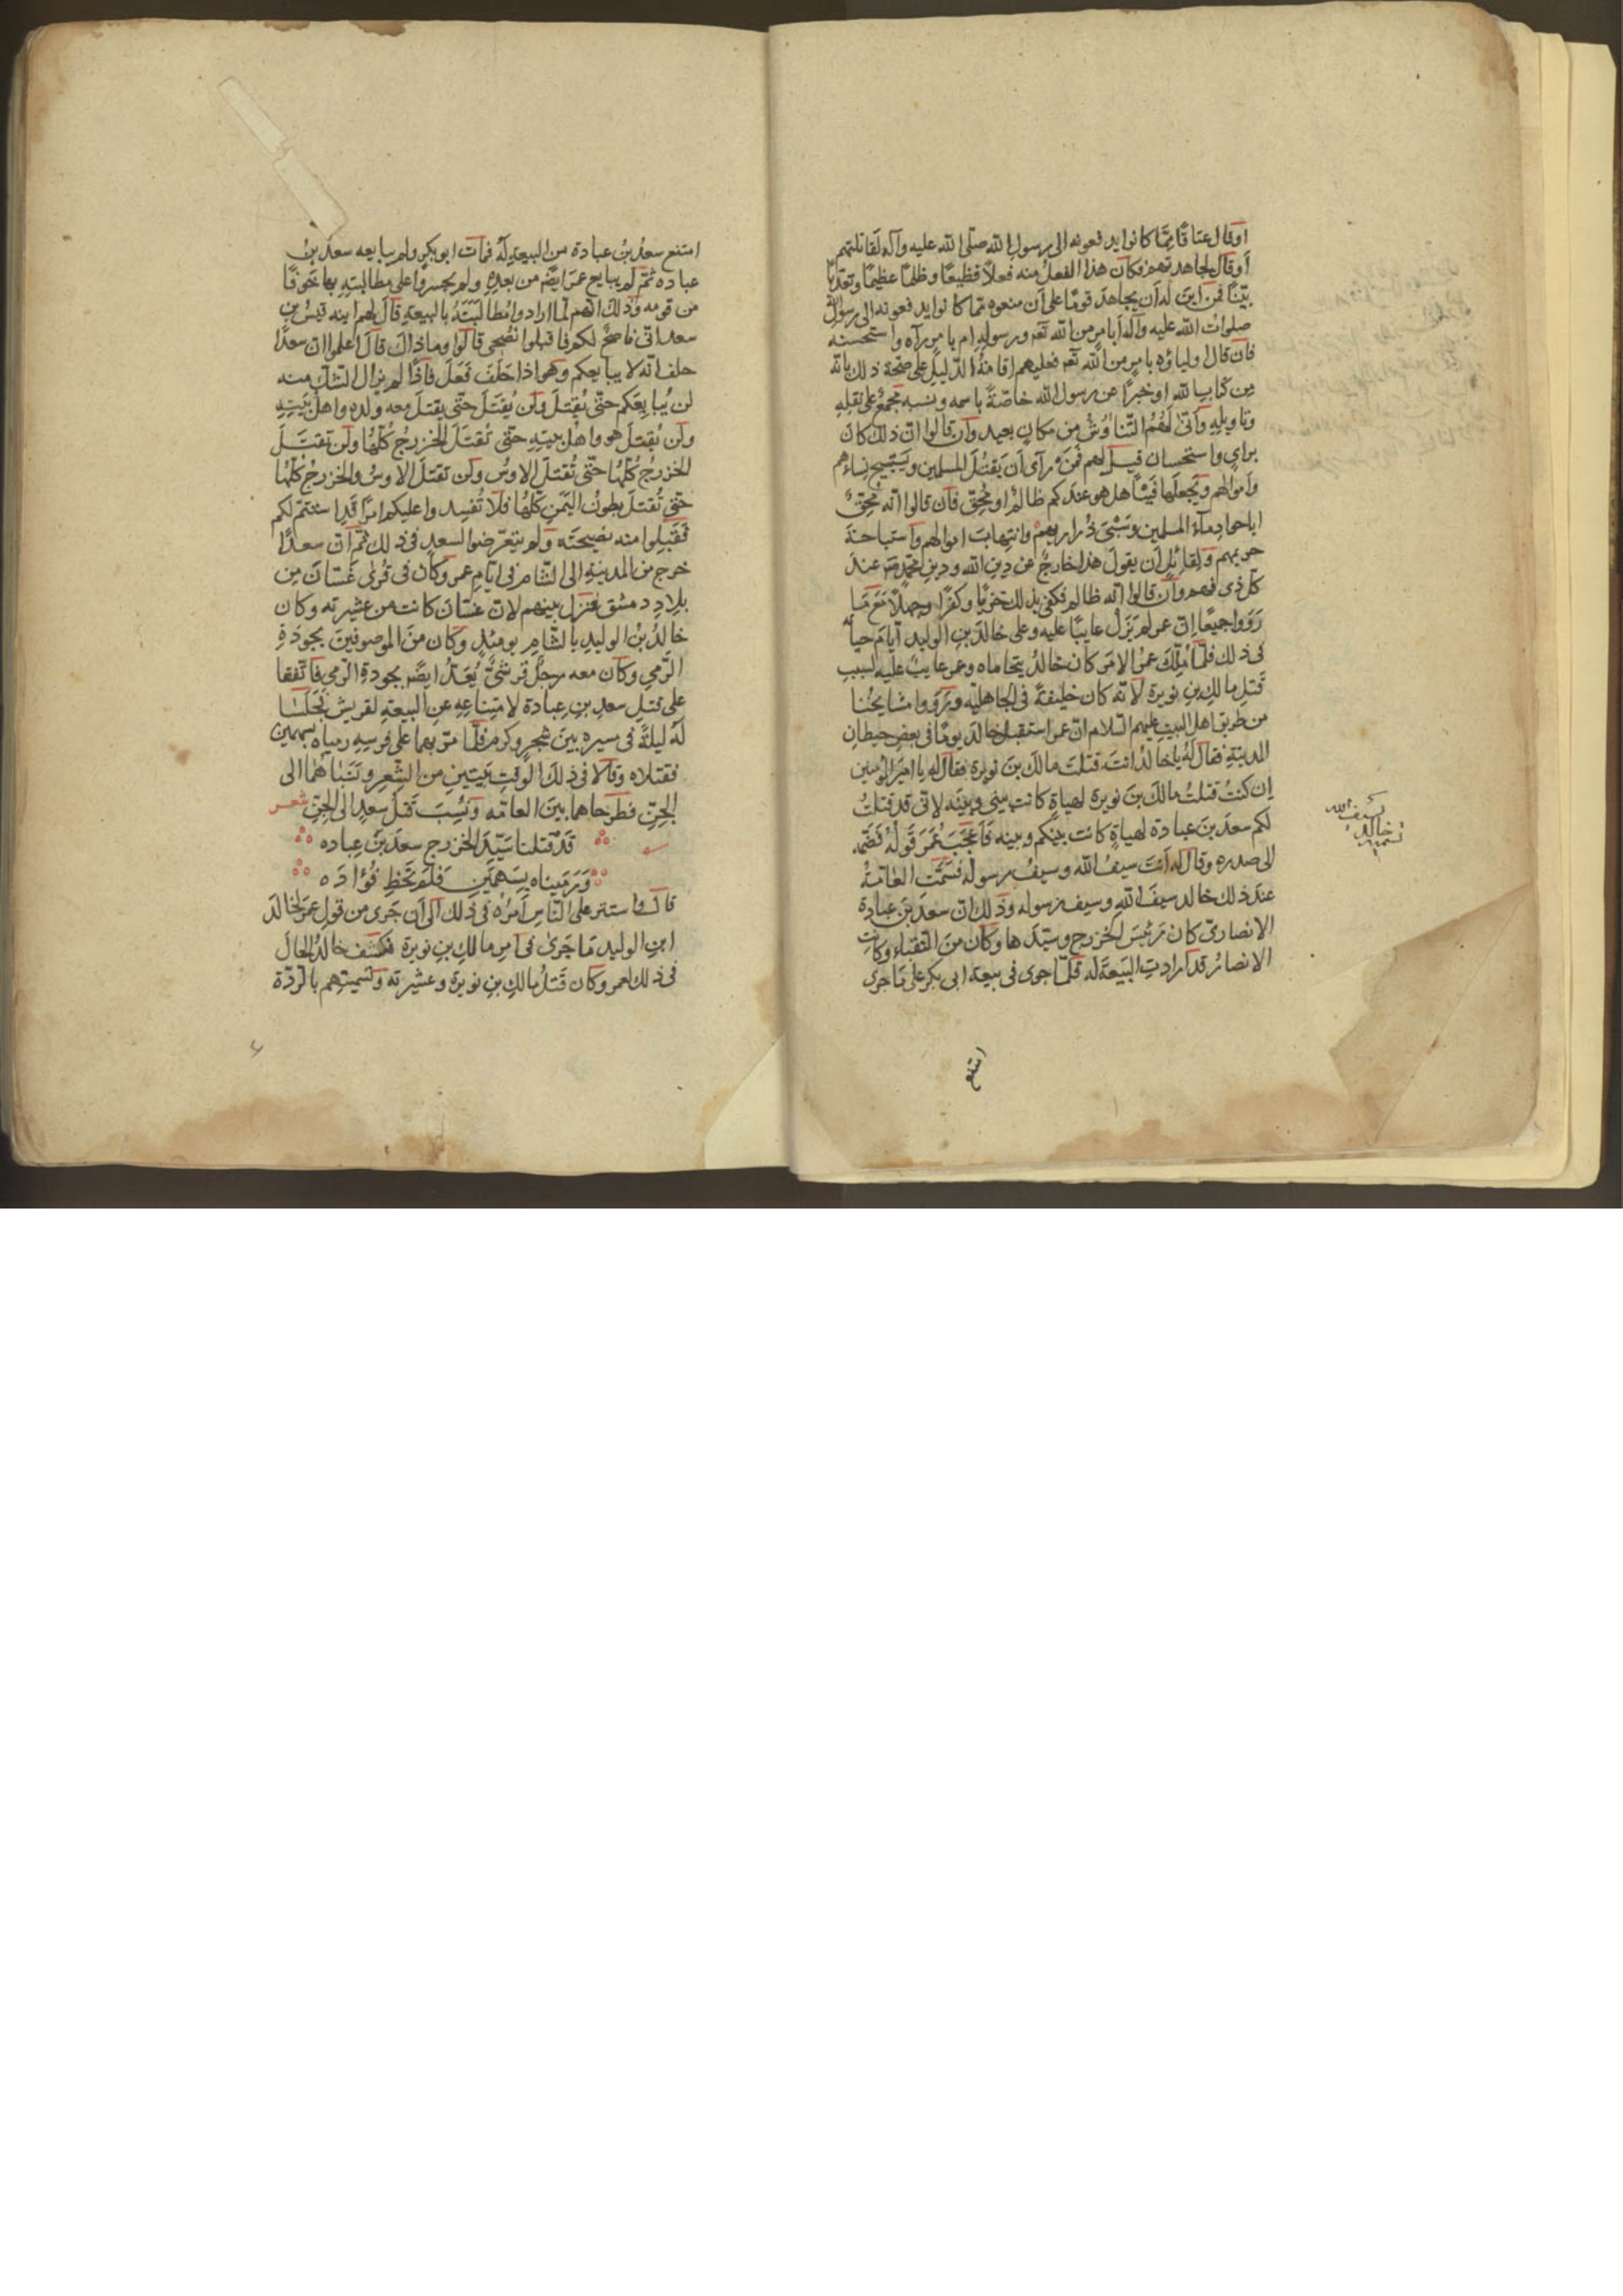 اوقال عتاقا مما كانوا يدفعونه الى رسول الله صلى الله عليه وآله لقاتلتهم
أوقال لجاهدتهم فكان هذا الفعل منه فعلاً فظيعًا وظلمًا عظيمًا وتعديًا
بيّنًا فمن اين له أن يجاهد قومًا على أن منعوه مما كانوا يدفعونه الى رسول الله
صلوات الله عليه وآله أبامر من الله تعه ورسوله ام بامر رآه واستحسنه
فان قال اولياؤه بامر من الله تعه فعليهم اقامة الدّليل على صحّة ذلك بآية
من كتاب الله او خبرًا عن رسول الله خاصّة باسمه ونسبه مجمع على نقله
وتاويله وأنّى لهم التّناوش من مكان بعيد وان قالوا ان ذلك كان
براي واستحسان قيل لهم فمن رآى أن يقتل المسلمين ويستبيح نساءهم
وأموالهم ويجعلها فيئًا هل هو عندكم ظالم او محقّ فان قالوا انّه محقّ
اباحوا دماء المسلمين وسبي ذراريهم وانتهاب اموالهم واستباحة
حريمهم ولقائل أن يقول هذا خارج عن دين الله ودين محمّد عند
كلّ ذي فهم وان قالوا انّه ظالم فكفى بذلك خزيًا وكفرًا وجهلاً مع ما
رووا جميعًا ان عمر لم يزل عايبًا عليه وعلى خالد بن الوليد أيام حياته
فى ذلك فلمّا ملك عمر الامر كان خالد يتحاماه وعمر عايب عليه لسبب
قتل مالك بن نويرة لانّه كان خليفة فى الجاهليّة ورووا مشايخنا
من طريق اهل البيت عليهم السّلام انّ عمر استقبل خالد يومًا فى بعض حيطان
المدينة فقال له يا خالد انت قتلت مالك بن نويرة فقال له يا امير المؤمنين
ان كنت قتلت مالك بن نويرة لهياة كانت بيني وبينه لاني قد قتلت
لكم سعد بن عبادة لهياة كانت بينكم وبينه فاعجب عمر قوله فضمّه
الى صدره وقال له انت سيف الله وسيف رسوله فسمّت العامّة
عند ذلك خالد سيف الله وسيف رسوله وذلك ان سعد بن عبادة
الانصارى كان رئيس الخزرج وسيّدها وكان من النّقباء وكانت
الانصار قد ارادت البيعة له فلمّا جرى فى بيعة ابى بكر على ما جرى
تسمية خالد بسيف الله
امتنع
امتنع سعد بن عبادة من البيعة له فمات ابو بكر ولم يبايعه سعد بن
عباده ثمّ لم يبايع عمر ايضًه من بعده ولم يجسروا على مطالبته بها خوفًا
من قومه وذلك انهم لما ارادوا مطالبته بالبيعة قال لهم ابنه قيس بن
سعد انى ناصح لكم فاقبلوا نصحى قالوا وما ذاك قال اعلموا ان سعدًا
حلف انّه لا يبايعكم وهو اذا حلف فعل فاذا لم يزال الشّك منه
لن يبايعكم حتّى يقتل ولن يقتل حتّى يقتل معه ولده واهل بيته
ولن يقتل هو واهل بيته حتّى تقتل الخزرج كلّها ولن تقتل
الخزرج كلّها حتّى تقتل الاوس ولن تقتل الاوس والخزرج كلّها
حتّى تقتل بطون اليمن كلّها فلا تفسدوا عليكم امرًا قد استتمّ لكم
فقبلوا منه نصيحته ولم يتعرّضوا لسعد فى ذلك ثمّ ان سعدًا
خرج من المدينة الى الشّام فى ايّام عمر وكان فى قرى غسّان من
بلاد دمشق فنزل بينهم لانّ غسّان كانت من عشيرته وكان
خالد بن الوليد بالشّام يومئذ وكان من الموصوفين بجودة
الرّمي وكان معه رجل قرشىّ يعدّ ايضًه بجودة الرّمي فاتّفقا
على قتل سعد بن عبادة لامتناعه عن البيعة لقريش فجلسا
له ليلة فى سيره بين شجر وكرم فلمّا مرّ بهما على فرسه رمياه بسهمين
فقتلاه وقالا فى ذلك الوقت بيتين من الشّعر ونسباهما الى
الجنّ فطرحاهما بين العامّه ونسبت قتل سعد الى الجنّ شعر
قد قتلنا سيّد الخزرج سعد بن عباده
ورميناه بسهمين فلم تخط فؤاده
قال واستتر على النّاس امره فى ذلك الى أن جرى من قول عمر لخالد
ابن الوليد ما جرى فى امر مالك بن نويرة فكشف خالد الحال
فى ذلك لعمر وكان قتل مالك بن نويرة وعشيرته وتسميتهم بالردّة